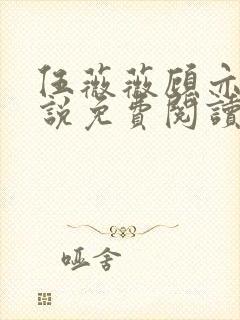 伍薇薇顾亦
說免費閱讀
哑舍